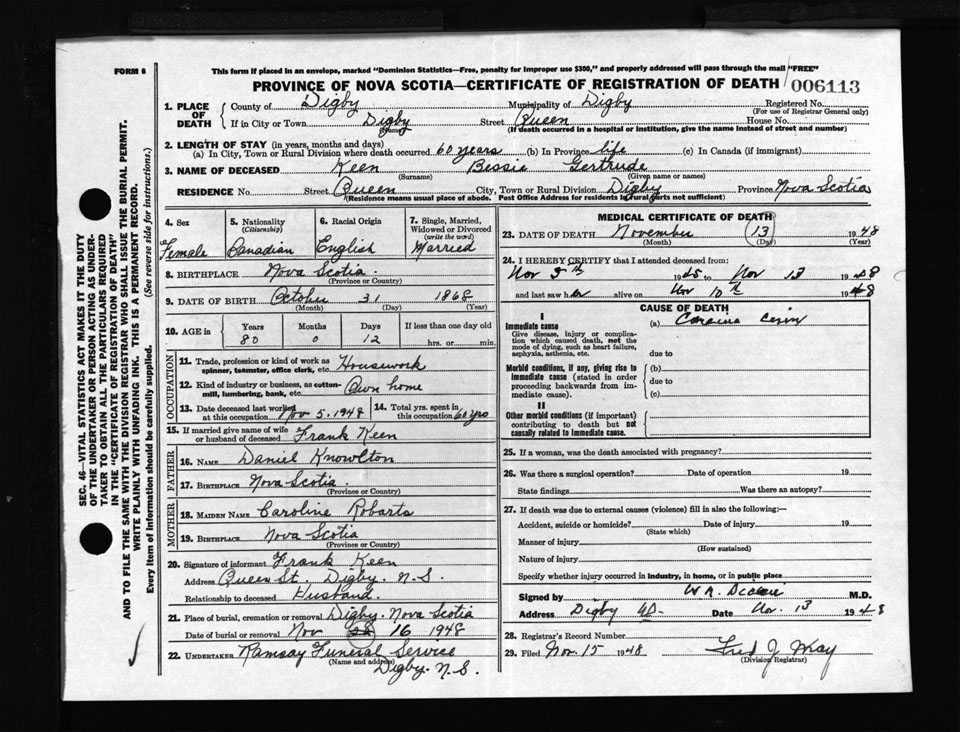 FORM 6
This form if placed in an envelope, marked "Dominion Statistics—Free, penalty for improper use $300," and properly addressed will pass through the mail "FREE"
PROVINCE OF NOVA SCOTIA—CERTIFICATE OF REGISTRATION OF DEATH
006113
1. PLACE OF DEATH
County of Digby Municipality of Digby Registered No.
(For use of Registrar General only)
If in City or Town Digby Street Queen House No.
(Name)
(If death occurred in a hospital or institution, give the name instead of street and number)
2. LENGTH OF STAY (in years, months and days)
(a) In City, Town or Rural Division where death occurred 60 years (b) In Province life (c) In Canada (if immigrant)
3. NAME OF DECEASED Keen Bessie Gertrude
(Surname) (Given name or names)
RESIDENCE No. Street Queen City, Town or Rural Division Digby Province Nova Scotia
(Residence means usual place of abode. Post Office Address for residents in rural parts not sufficient)
4. Sex
Female
5. Nationality
(Citizenship)
Canadian
6. Racial Origin
English
7. Single, Married, Widowed or Divorced
(write the word)
Married
8. BIRTHPLACE Nova Scotia.
(Province or Country)
9. DATE OF BIRTH October 31 1868
(Month) (Day) (Year)
10. AGE in Years Months Days If less than one day old
80 0 12 hrs. or min.
OCCUPATION
11. Trade, profession or kind of work as spinner, teamster, office clerk, etc. Housework
12. Kind of industry or business, as cotton-mill, lumbering, bank, etc. Own home
13. Date deceased last worked at this occupation Nov 5, 1948
14. Total yrs. spent in this occupation 60 yrs
15. If married give name of wife or husband of deceased Frank Keen
FATHER
16. NAME Daniel Knowlton
17. BIRTHPLACE Nova Scotia.
(Province or Country)
MOTHER
18. MAIDEN NAME Caroline Robarts
19. BIRTHPLACE Nova Scotia
(Province or Country)
20. Signature of informant Frank Keen
Address Queen St., Digby. N.S.
Relationship to deceased Husband.
21. Place of burial, cremation or removal Digby. Nova Scotia
Date of burial or removal Nov 16 1948
22. UNDERTAKER Ramsay Funeral Service
(Name and address)
Digby. N.S.
MEDICAL CERTIFICATE OF DEATH
23. DATE OF DEATH November 13 1948
(Month) (Day) (Year)
24. I HEREBY CERTIFY that I attended deceased from:
Nov 5th 1945 to Nov 13 1948
and last saw her alive on Nov 10th 1948
CAUSE OF DEATH
I
Immediate cause
Give disease, injury or complication which caused death, not the mode of dying, such as heart failure, asphyxia, asthenia, etc.
(a)
due to
Morbid conditions, if any, giving rise to immediate cause (stated in order proceeding backwards from immediate cause).
(b)
due to
(c)
II
Other morbid conditions (if important) contributing to death but not causally related to immediate cause.
25. If a woman, was the death associated with pregnancy?
26. Was there a surgical operation? Date of operation 19
State findings Was there an autopsy?
27. If death was due to external causes (violence) fill in also the following:—
Accident, suicide or homicide? Date of injury 19
(State which)
Manner of injury
(How sustained)
Nature of injury
Specify whether injury occurred in industry, in home, or in public place
Signed by M.D.
Address Digby Date Nov. 13 1948
28. Registrar's Record Number
29. Filed Nov. 15 1948 Fred J. Wray
(Division Registrar)
SEC. 46—VITAL STATISTICS ACT MAKES IT THE DUTY
OF THE UNDERTAKER OR PERSON ACTING AS UNDER-
TAKER TO OBTAIN ALL THE PARTICULARS REQUIRED
IN THE "CERTIFICATE OF REGISTRATION OF DEATH"
AND TO FILE THE SAME WITH THE DIVISION REGISTRAR WHO SHALL ISSUE THE BURIAL PERMIT.
WRITE PLAINLY WITH UNFADING INK. THIS IS A PERMANENT RECORD.
Every item of information should be carefully supplied. (See reverse side for instructions.)